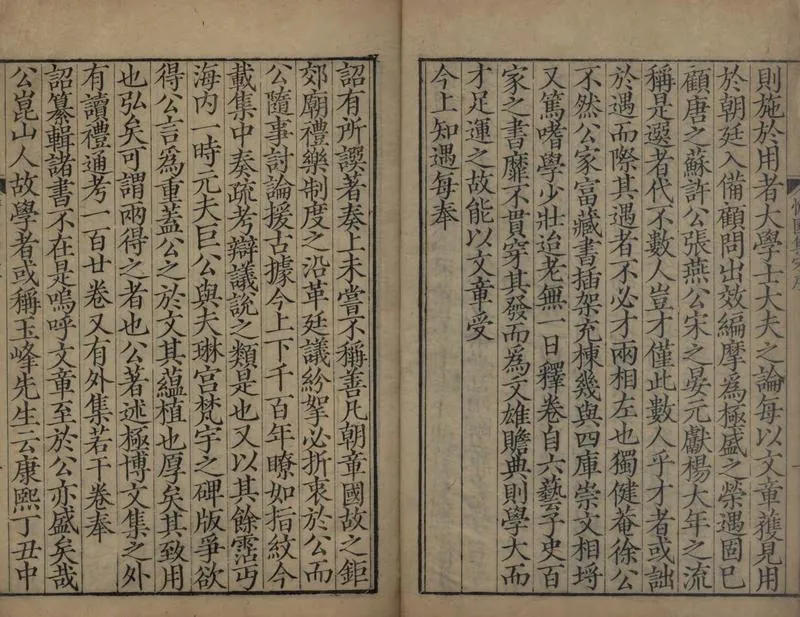 則施於用者大學士大夫之論每以文章獲見用
於朝廷入備顧問出效編摩為極盛之榮遇固已
顧唐之蘇許公張燕公宋之晏元獻楊大年之流
稱是選者代不數人豈才僅此數人乎才者或詘
於遇而際其遇者不必才兩相左也獨健菴徐公
不然公家富藏書插架充棟幾與四庫崇文相埒
又篤嗜學少壯迨老無一日釋卷自六藝子史百
家之書靡不貫穿其發而為文雄贍典則學大而
才足運之故能以文章受
今上知遇每奉
詔有所譔著奏上未嘗不稱善凡朝章國故之鉅
郊廟禮樂制度之沿革廷議紛挐必折衷於公而
公隨事討論援古據今上下千百年瞭如指紋今
載集中奏疏考辯議說之類是也又以其餘霑丐
海內一時元夫巨公與夫琳宮梵宇之碑版爭欲
得公言爲重蓋公之於文其蘊植也厚矣其致用
也弘矣可謂兩得之者也公著述極博文集之外
有讀禮通考一百廿卷又有外集若干卷奉
詔纂輯諸書不在是嗚呼文章至於公亦盛矣哉
公崑山人故學者或稱玉峰先生云康熙丁丑中